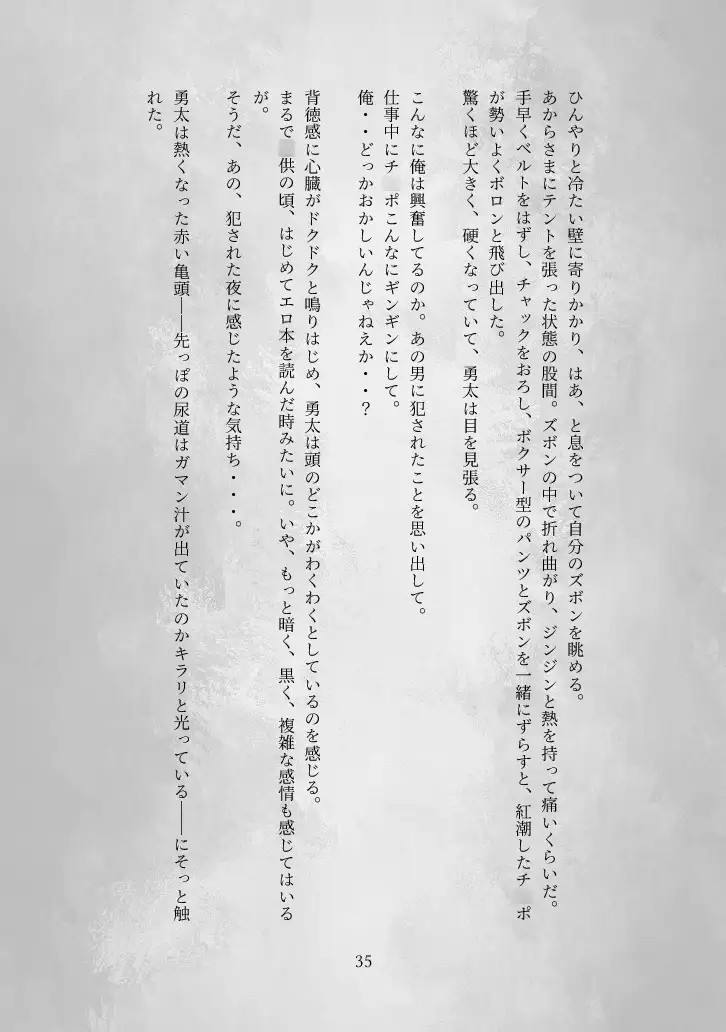 ひんやりと冷たい壁に寄りかかり、はあ、と息をついて自分のズボンを眺める。
あからさまにテントを張った状態の股間。ズボンの中で折れ曲がり、ジンジンと熱を持って痛いくらいだ。
手早くベルトをはずし、チャックをおろし、ボクサー型のパンツとズボンを一緒にずらすと、紅潮したチ ポ
が勢いよくボロンと飛び出した。
驚くほど大きく、硬くなっていて、勇太は目を見張る。
こんなに俺は興奮してるのか。あの男に犯されたことを思い出して。
仕事中にチ ポこんなにギンギンにして。
俺・・どっかおかしいんじゃねえか・・？
背徳感に心臓がドクドクと鳴りはじめ、勇太は頭のどこかがわくわくとしているのを感じる。
まるで 供の頃、はじめてエロ本を読んだ時みたいに。いや、もっと暗く、黒く、複雑な感情も感じてはいる
が。
そうだ、あの、犯された夜に感じたような気持ち・・・。
勇太は熱くなった赤い亀頭――先っぽの尿道はガマン汁が出ていたのかキラリと光っている――にそっと触
れた。
35